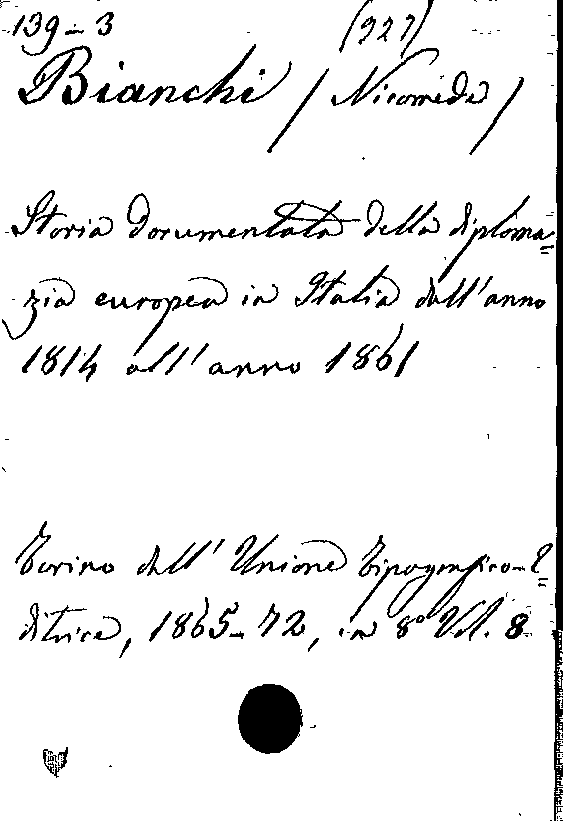 139-3 (927)
Bianchi / Nicomede /
Storia documentata della diploma=
zia europea in Italia dall'anno
1814 all'anno 1861
Torino dall'Unione Tipografico-E=
ditrice, 1865-72, in 8° Vol. 8